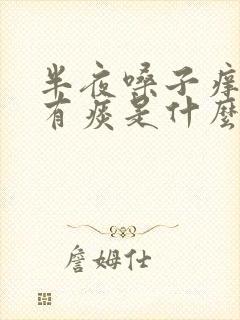 半夜嗓子痒
有痰是什麼
詹姆仕